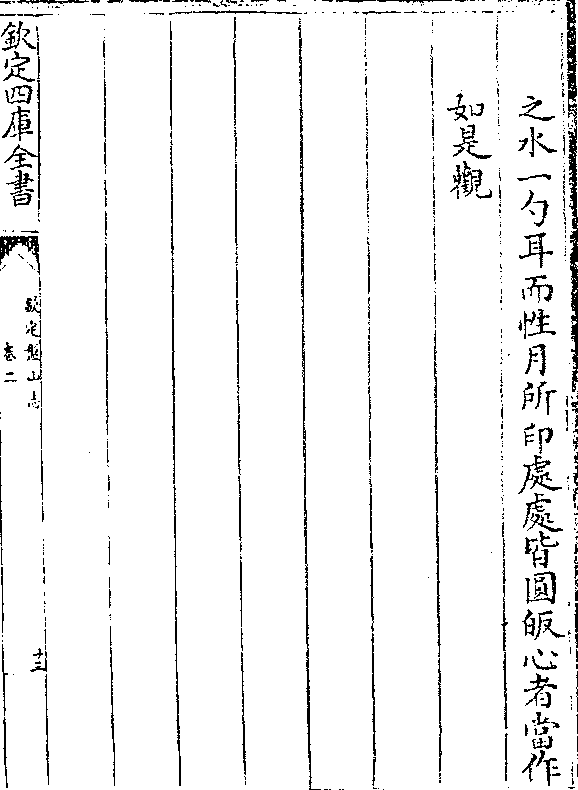 之水一勺耳而性月所印處處皆圓皈心者當作
如是觀
欽定四庫全書
欽定盤山志
卷二
十三